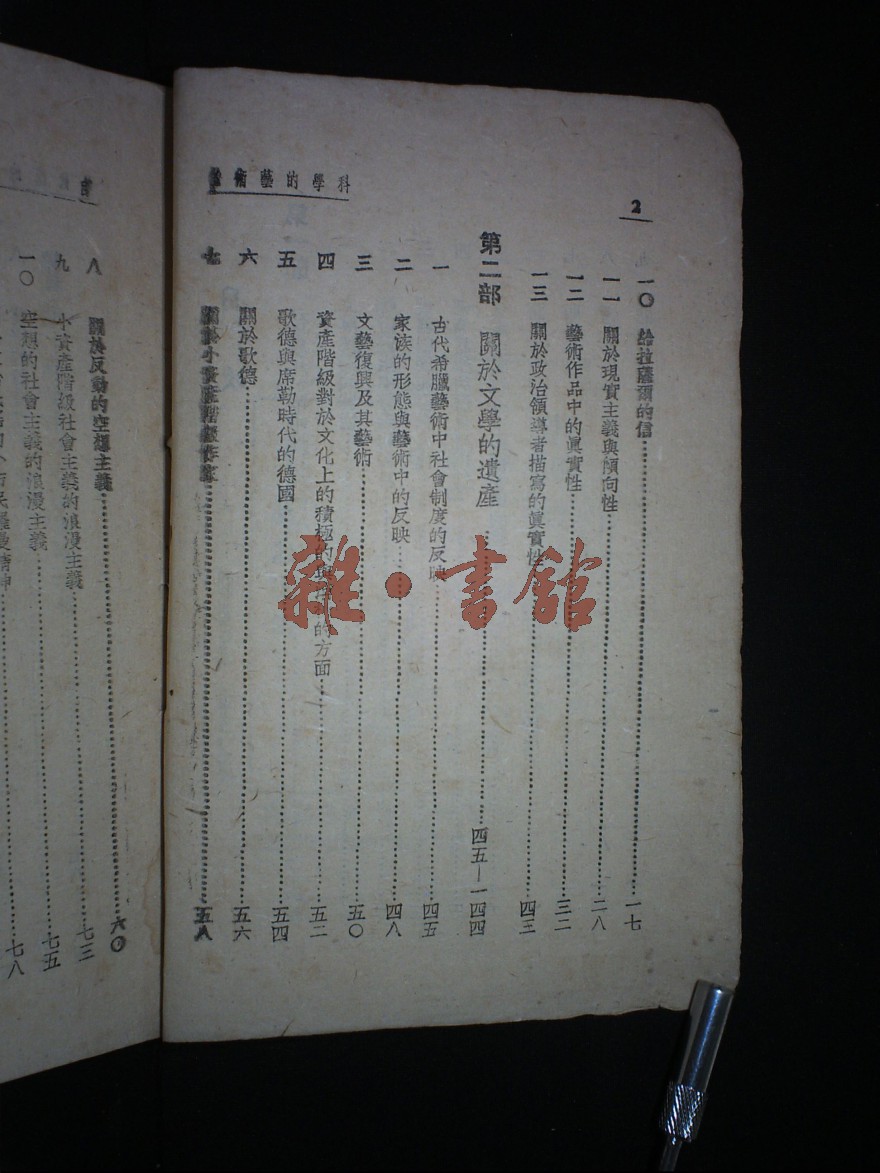 2
科學的藝術論
一〇 給拉薩爾的信 一七
一一 關於現實主義與傾向性 二八
一二 藝術作品中的眞實性 三二
一三 關於政治領導者描寫的眞實性 四三
第二部 關於文學的遺產 四五—一四四
一 古代希臘藝術中社會制度的反映 四五
二 家族的形態與藝術中的反映 四八
三 文藝復興及其藝術 五〇
四 資產階級對於文化上的積極的與的方面 五二
五 歌德與席勒時代的德國 五四
六 關於歌德 五六
七 關於小資產階級作家 五八
八 關於反動的空想主義 六〇
九 小資產階級社會主義的浪漫主義 七三
一〇 空想的社會主義的浪漫主義 七五
七八
雜·書館